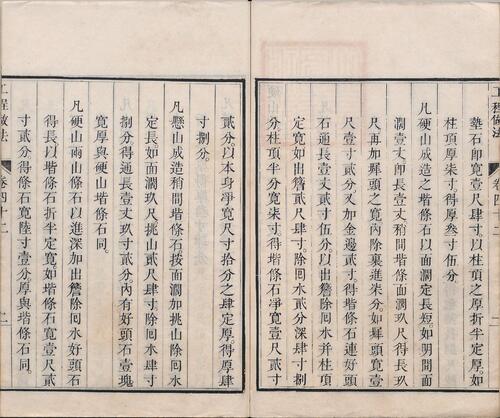 墊石即寬壹尺肆寸以柱頂之厚折半定厚如
柱頂厚柒寸得厚叁寸伍分
凡硬山成造之堦條石以面濶定長短如明間面
濶壹丈即長壹丈稍間堦條面濶玖尺得長玖
尺再加墀頭之寬內除裏進柒分如墀頭寬壹
尺壹寸貳分又加金邊貳寸得堦條石連好頭
石通長壹丈貳寸伍分以出簷除囘水并柱項
定寬如出簷貳尺肆寸除囘水貳分深肆寸捌
分柱頂半分寬柒寸得堦條石淨寬壹尺貳寸
貳分以本身淨寬尺寸拾分之肆定厚得厚肆
寸捌分
凡懸山成造稍間堦條石按面濶加挑山除囘水
定長如面濶玖尺挑山貳尺肆寸除囘水肆寸
捌分得通長壹丈玖寸貳分內有好頭石壹塊
寬厚與硬山堦條石同
凡硬山兩山條石以進深加出簷除囘水好頭石
得長以堦條石折半定寬如堦條石寬壹尺貳
寸貳分得條石寬陸寸壹分厚與堦條石同
工程做法
卷四十二
二